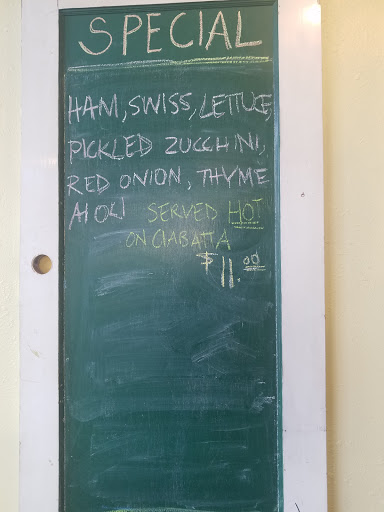 SPECIAL
HAM, SWISS, LETTUCE,
PICKLED ZUCCHINI,
RED ONION, THYME
AIOLI SERVED HOT
ON CIABATTA
$11.00